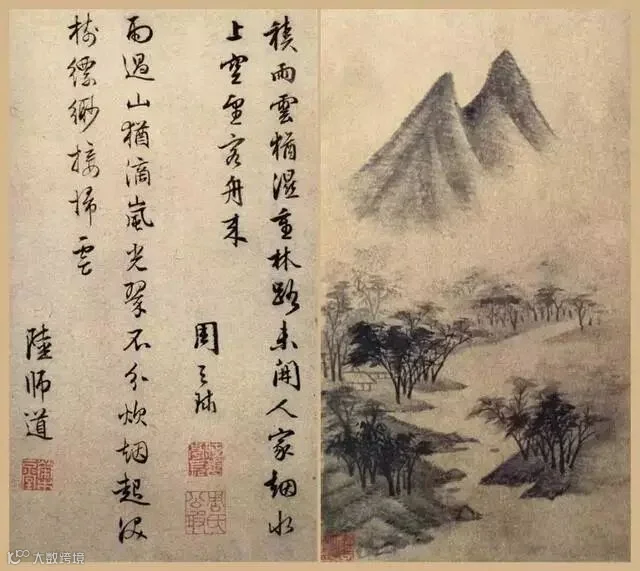 積雨雲猶濕重林路未開人家烟水
上空望客舟來
周天球
周氏公瑕
雨過山猶滴嵐光翠不分炊烟起深
樹縹緲接歸雲
陸師道
大数跨境